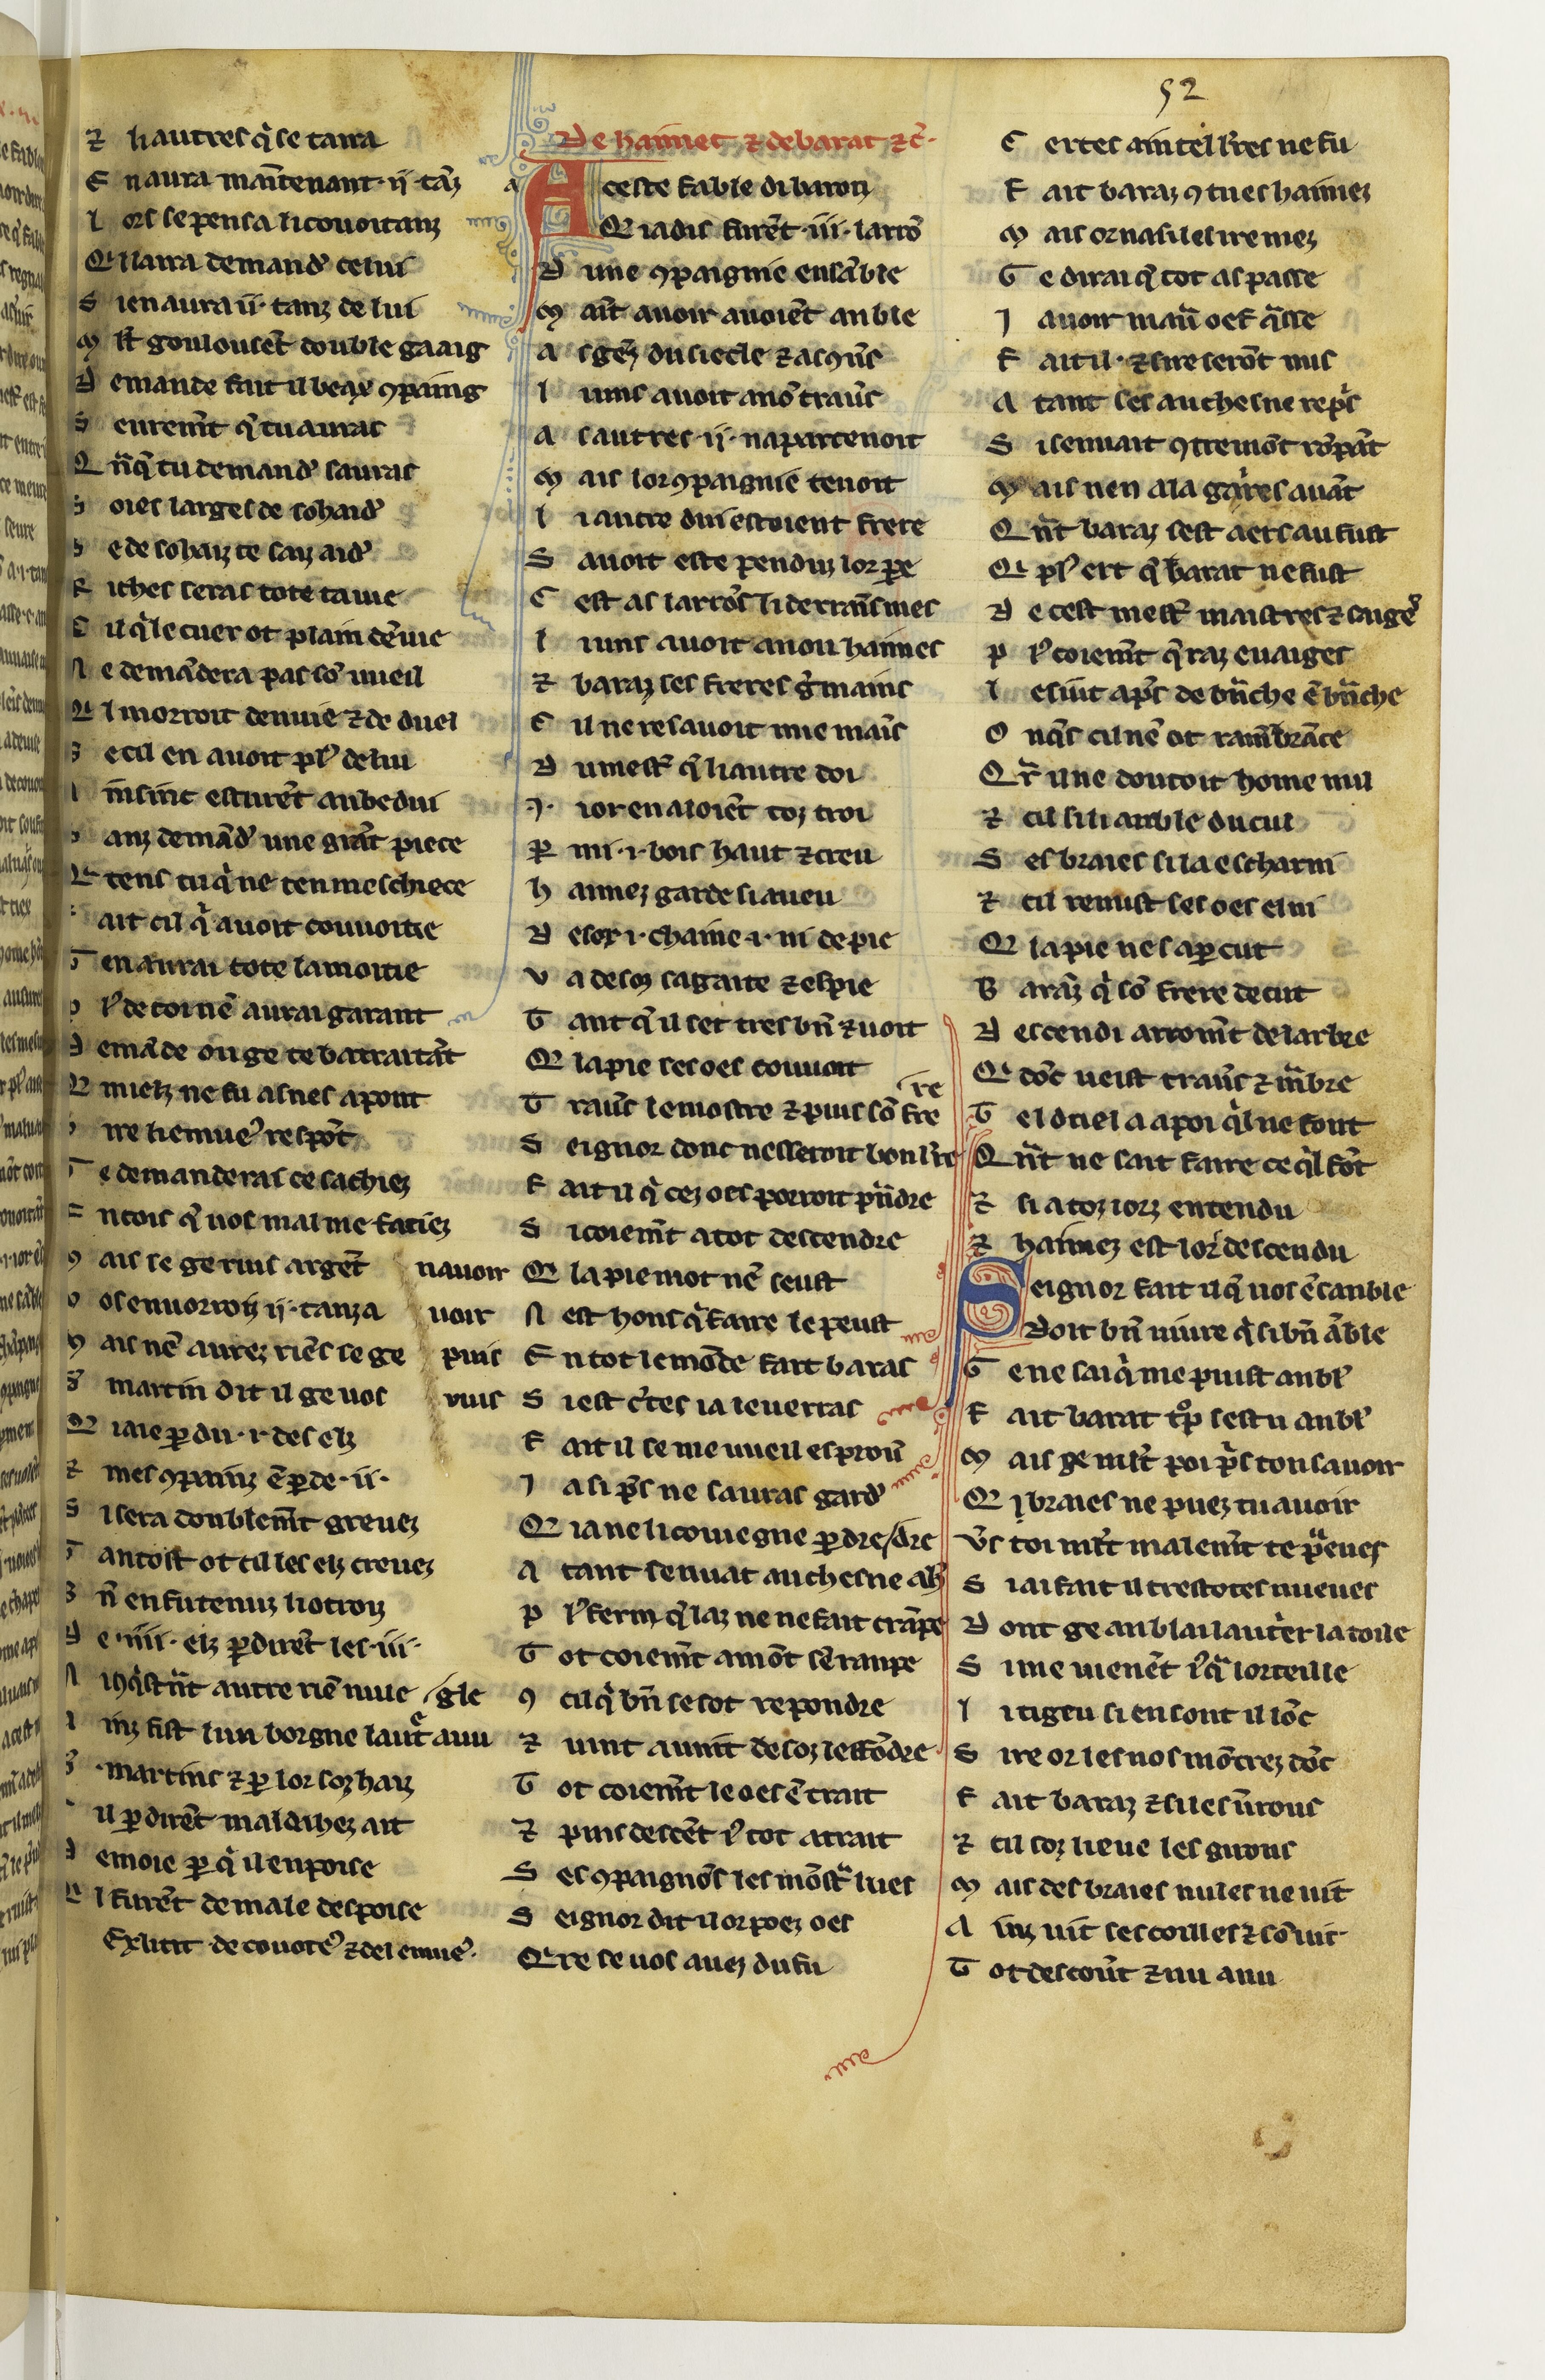 52
⁊ li autres q̇ se taira
E n aura maı̄tenant · ii · tāz
L ors se pensa li couoitanz
Q il laira demand' celui
S ien aura ii · tanz de lui
M lt goulouset double gaaig
D emande fait il beax ꝯpainig
S eurem̄t q̄ tu auras
Q ñq̄ tu demand' sauras
S oies larges de sohaid'
S e de sohaiz te saiz aid'
R iches seras tote ta uie
C il q̇ le cuer ot plain dēuie
N e demādera pas sō uueil
Q il morroit denuie ⁊ de duel
S e cil en auoit pl' de lui
A insinc esturēt anbedui
S anz demād' une grāt piece
Q atens tu q̇ ne ten meschiece
F ait cil q̇ auoit couuoitie
G en aurai tote la moitie
P l' de toi nē aurai garant
D emāde ou ge te batrai tāt
Q mielz ne fu asnes a pont
S ire li enuie' respōt
G e demanderai ce sachiez
E ncois q̄ uos mal me faciez
M ais se ge ruis argēt nauoir
V os en uorroiz ii · tanz auoir
M ais nē aurez riēs se ge puis
S' martin dit il ge uos ruis
Q iaie ꝑdu · i · des elz
⁊ mes ꝯpainz ē ꝑde · ii ·
S i sera doublem̄t greuez
T antost ot cil les elz creuez
B ñ en fu tenuz li otroiz
D e · iiii · elz ꝑdirēt les · iii ·
N i ꝯq̇str̄nt autre riē nule
A inz fist lun borgne laut̄ auugle
S' · martins ⁊ ꝑ lor sozhaiz
C il ꝑdirēt mal dihez ait
D e moie ꝑ q̇ il en poise
Q il furēt de male despoise
Explicit de couote' ⁊ del enuie' ·
De haimet ⁊ de barat ⁊c̄ ·
A ceste fable di baron
Q iadis furēt · iii · larrō
D une ꝯpaignie ensāble
M aīt auoir auoiēt anble
A s gēz du siecle ⁊ as ꝯūs
L i uns auoit a nō trau̅s
A s autres · ii · napartenoit
M ais lor ꝯpaignie tenoit
L i autre dui estoient frere
S auoit este penduz lor ꝑe
C est as larrōs li derrañs mes
L i uns auoit a non haimes
⁊ baraz ses freres g̃mains
C il ne resauoit mie maı̄s
D u mest' q̄ li autre doi
· I · ior en aloiēt toz troi
P mi · i · bois haut ⁊ creu
H aimez garde si a ueu
D esoz · i · chaine · i · ni de pie
V a desoz sagaite ⁊ espie
T ant q̄ il set tres bñ ⁊ uoit
Q la pie ses oes couuoit
T rau̅s le mostre ⁊ puis sō frere
S eignor donc ne seroit bon l̄re
F ait il q̇ cez oes porroit pñdre
S i coiem̄t a tot descendre
Q la pie mot nē seust
N est hons q̇ faire le peust
E n tot le mōde fait baras
S i est c̄tes ia le uerras
F ait il se me uueil esprou̅
J a si p̄s ne sauras gard'
Q ia ne li couiegne ꝑdre
A tant sen uat au chesne ah'dre
P l' ferm q̄ laz ne ne fait trāpe
T ot coiem̄t amōt se rampe
9 cil q̇ bñ se sot repondre
⁊ uint au nit desoz leffōdre
T ot coiem̄t le oes ē trait
⁊ puis descēt · tot a trait
S es ꝯpaignōs les mōst̃ lues
S eignor dit il or poez oes
Qre se uos auez du fu
C ertes ainc tel l̄res ne fu
F ait baraz ꝯ tu es haimez
M ais or ua si les remez
G e dirai q̄ tot as passe
J auoir mau̅ oef q̃sse
F ait il · ⁊ si re serōt mis
A tant ses au chesne rep̃s
S i sen uait ꝯtremōt rōpāt
M ais nen ala gaires auāt
Q ñt baraz sest aers au fust
Q pl' ert q̄ barat ne fust
D e cest mest' maistres ⁊ sage'
P l' coiem̄t q̄ raz euaiges
L e siut ap̃s de brāche ē brāche
O nq̄s cil nē ot ramēbrāce
Q r̄ il ne doutoit home nul
⁊ cil si li amble du cul
S es braies si la escharni
⁊ cil remist ses oes el ni
Q la pie nes aꝑcut
B araz q̇ sō frere decut
D escendi arrom̄t de larbre
Q dōc ueist trau̅s ⁊ m̄bre
T el duel a a poi q̇l ne font
Q ñt ne sait faire ce q̇l fōt
⁊ si a toz iorz entendu
⁊ haimez est lor descendu
S eignor fait il q̄ uos ē sanble
Doit bñ uiure q̇ si bñ āble
G e ne sai q̇ me puist anbl'
F ait barat t°p sestu anbl'
M ais ge nilt poi p̃s ton sauoir
Q i braies ne puez tu auoir
V's toi mlt malem̄t te ꝑeues
S i ai fait il trestotes nueues
D ont ge anblai lautier la toile
S i me uienēt iq̃ lorteille
L i tigeu si en sont il lōc
S ire or les nos mōtrez dōc
F ait baraz ⁊ si les u̅rons
⁊ cil soz lieue les girons
M ais des braies nules ne uit
A inz uit ses coilles ⁊ sō uit ·
T ot descou̅t ⁊ nu a nu